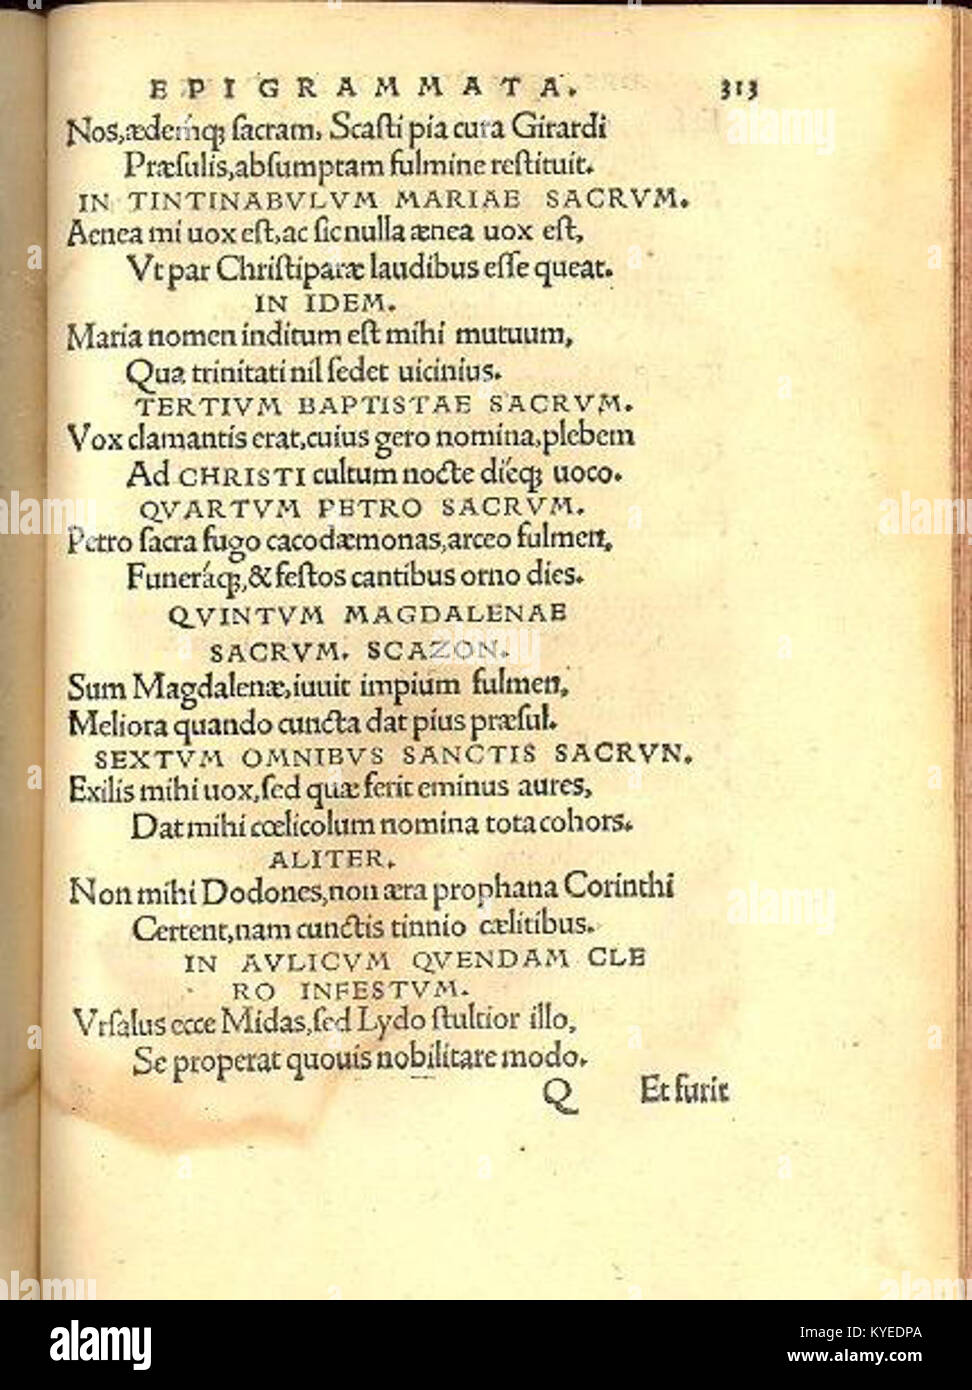 EPIGRAMMATA. 313
Nos,ædemq́; sacram, Scasti pia cura Girardi
Præsulis,absumptam fulmine restituit.
IN TINTINABVLVM MARIAE SACRVM.
Aenea mi uox est,ac sic nulla ænea uox est,
Vt par Christiparæ laudibus esse queat.
IN IDEM.
Maria nomen inditum est mihi mutuum,
Qua trinitati nil sedet uicinius.
TERTIVM BAPTISTAE SACRVM.
Vox clamantis erat,cuius gero nomina,plebem
Ad CHRISTI cultum nocte díeq; uoco.
QVARTVM PETRO SACRVM.
Petro sacra fugo cacodæmonas,arceo fulmen,
Funeráq;,& festos cantibus orno dies.
QVINTVM MAGDALENAE
SACRVM. SCAZON.
Sum Magdalenæ,iuuit impium fulmen,
Meliora quando cuncta dat pius præsul.
SEXTVM OMNIBVS SANCTIS SACRVN.
Exilis mihi uox,sed quæ ferit eminus aures,
Dat mihi cœlicolum nomina tota cohors.
ALITER.
Non mihi Dodones,non æra prophana Corinthi
Certent,nam cunctis tinnio cælitibus.
IN AVLICVM QVENDAM CLE
RO INFESTVM.
Vrsalus ecce Midas,sed Lydo stultior illo,
Se properat quouis nobilitare modo.
Q Et furit
alamy
Image ID: KYEDPA
www.alamy.com